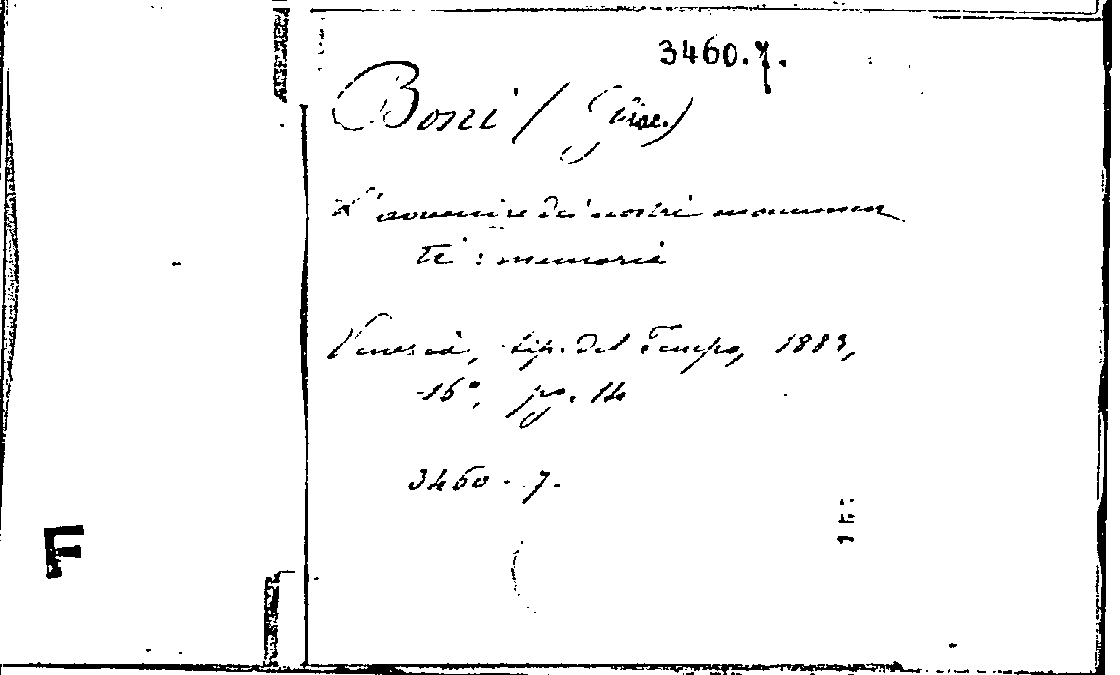 3460.7.
Boni / (Giac.)
L'avvenire dei nostri monumen
ti : memoria
Venezia, tip. del Tempo, 1883,
16°, pg. 14
3460 - 7.
F